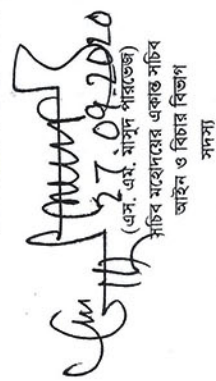 27.09.2020
(এস. এম. মাসুদ পারভেজ)
সচিব মহোদয়ের একান্ত সচিব
আইন ও বিচার বিভাগ
সদস্য